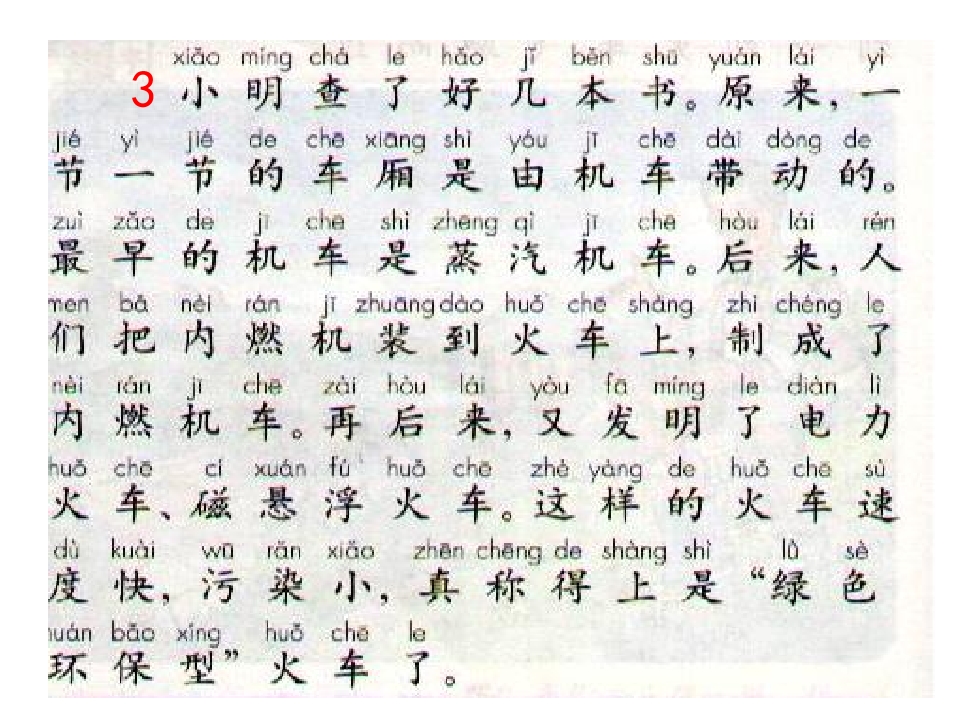 xiǎo míng chá le hǎo jǐ běn shū yuán lái yì
3 小明查了好几本书。原来，一
jié yì jié de chē xiāng shì yóu jī chē dài dòng de
节一节的车厢是由机车带动的。
zuì zǎo de jī chē shì zhēng qì jī chē hòu lái rén
最早的机车是蒸汽机车。后来，人
men bǎ nèi rán jī zhuāng dào huǒ chē shàng zhì chéng le
们把内燃机装到火车上，制成了
nèi rán jī chē zài hòu lái yòu fā míng le diàn lì
内燃机车。再后来，又发明了电力
huǒ chē cí xuán fú huǒ chē zhè yàng de huǒ chē sù
火车、磁悬浮火车。这样的火车速
dù kuài wū rǎn xiǎo zhēn chēng de shàng shì lǜ sè
度快，污染小，真称得上是“绿色
huán bǎo xíng huǒ chē le
环保型”火车了。